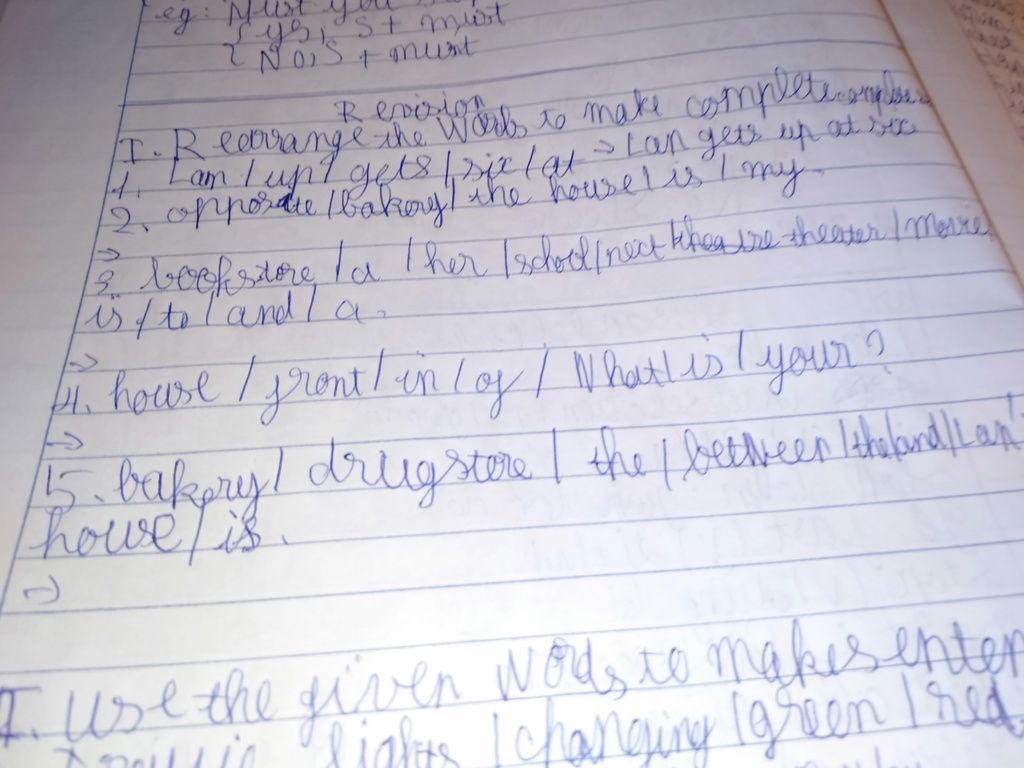 eg: Must you
{ yes, S + must
{ No, S + must
Revision
I. Rearrange the Words to make complete
1. Lan / up / gets / six / at → Lan gets up at six
2. opposite / bakery / the house / is / my.
→
3. bookstore / a / her / school / next theater / Movie
is / to / and / a.
→
4. house / front / in / of / What / is / your?
→
5. bakery / drugstore / the / between / the / and / Lan's
house / is.
→
I. Use the given Words to make senten
lights / changing / green / red.